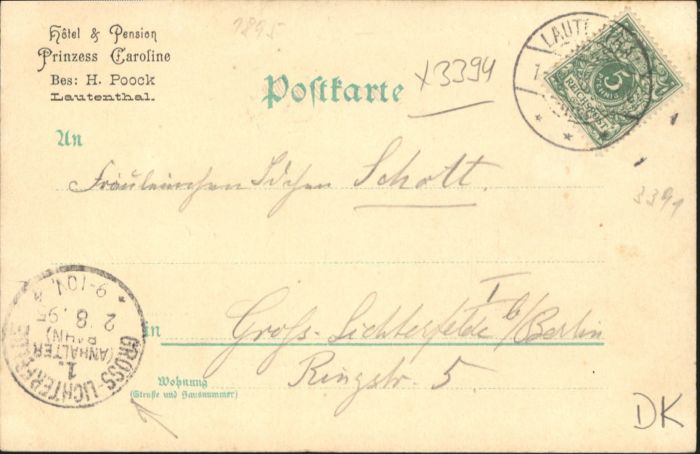 Hôtel & Pension
Prinzess Caroline
Bes: H. Poock
Lautenthal.
1895
Postkarte
x3394
LAUTENTHAL
5
REICHSPOST
An
Fräuleinchen Idchen Schott.
3391
in Gross-Lichterfelde I b/Berlin
Ringstr. 5
Wohnung
(Straße und Hausnummer)
GROSS-LICHTERFELDE
1.
(ANHALTER
BAHN)
2 8.95
9-10V.
DK